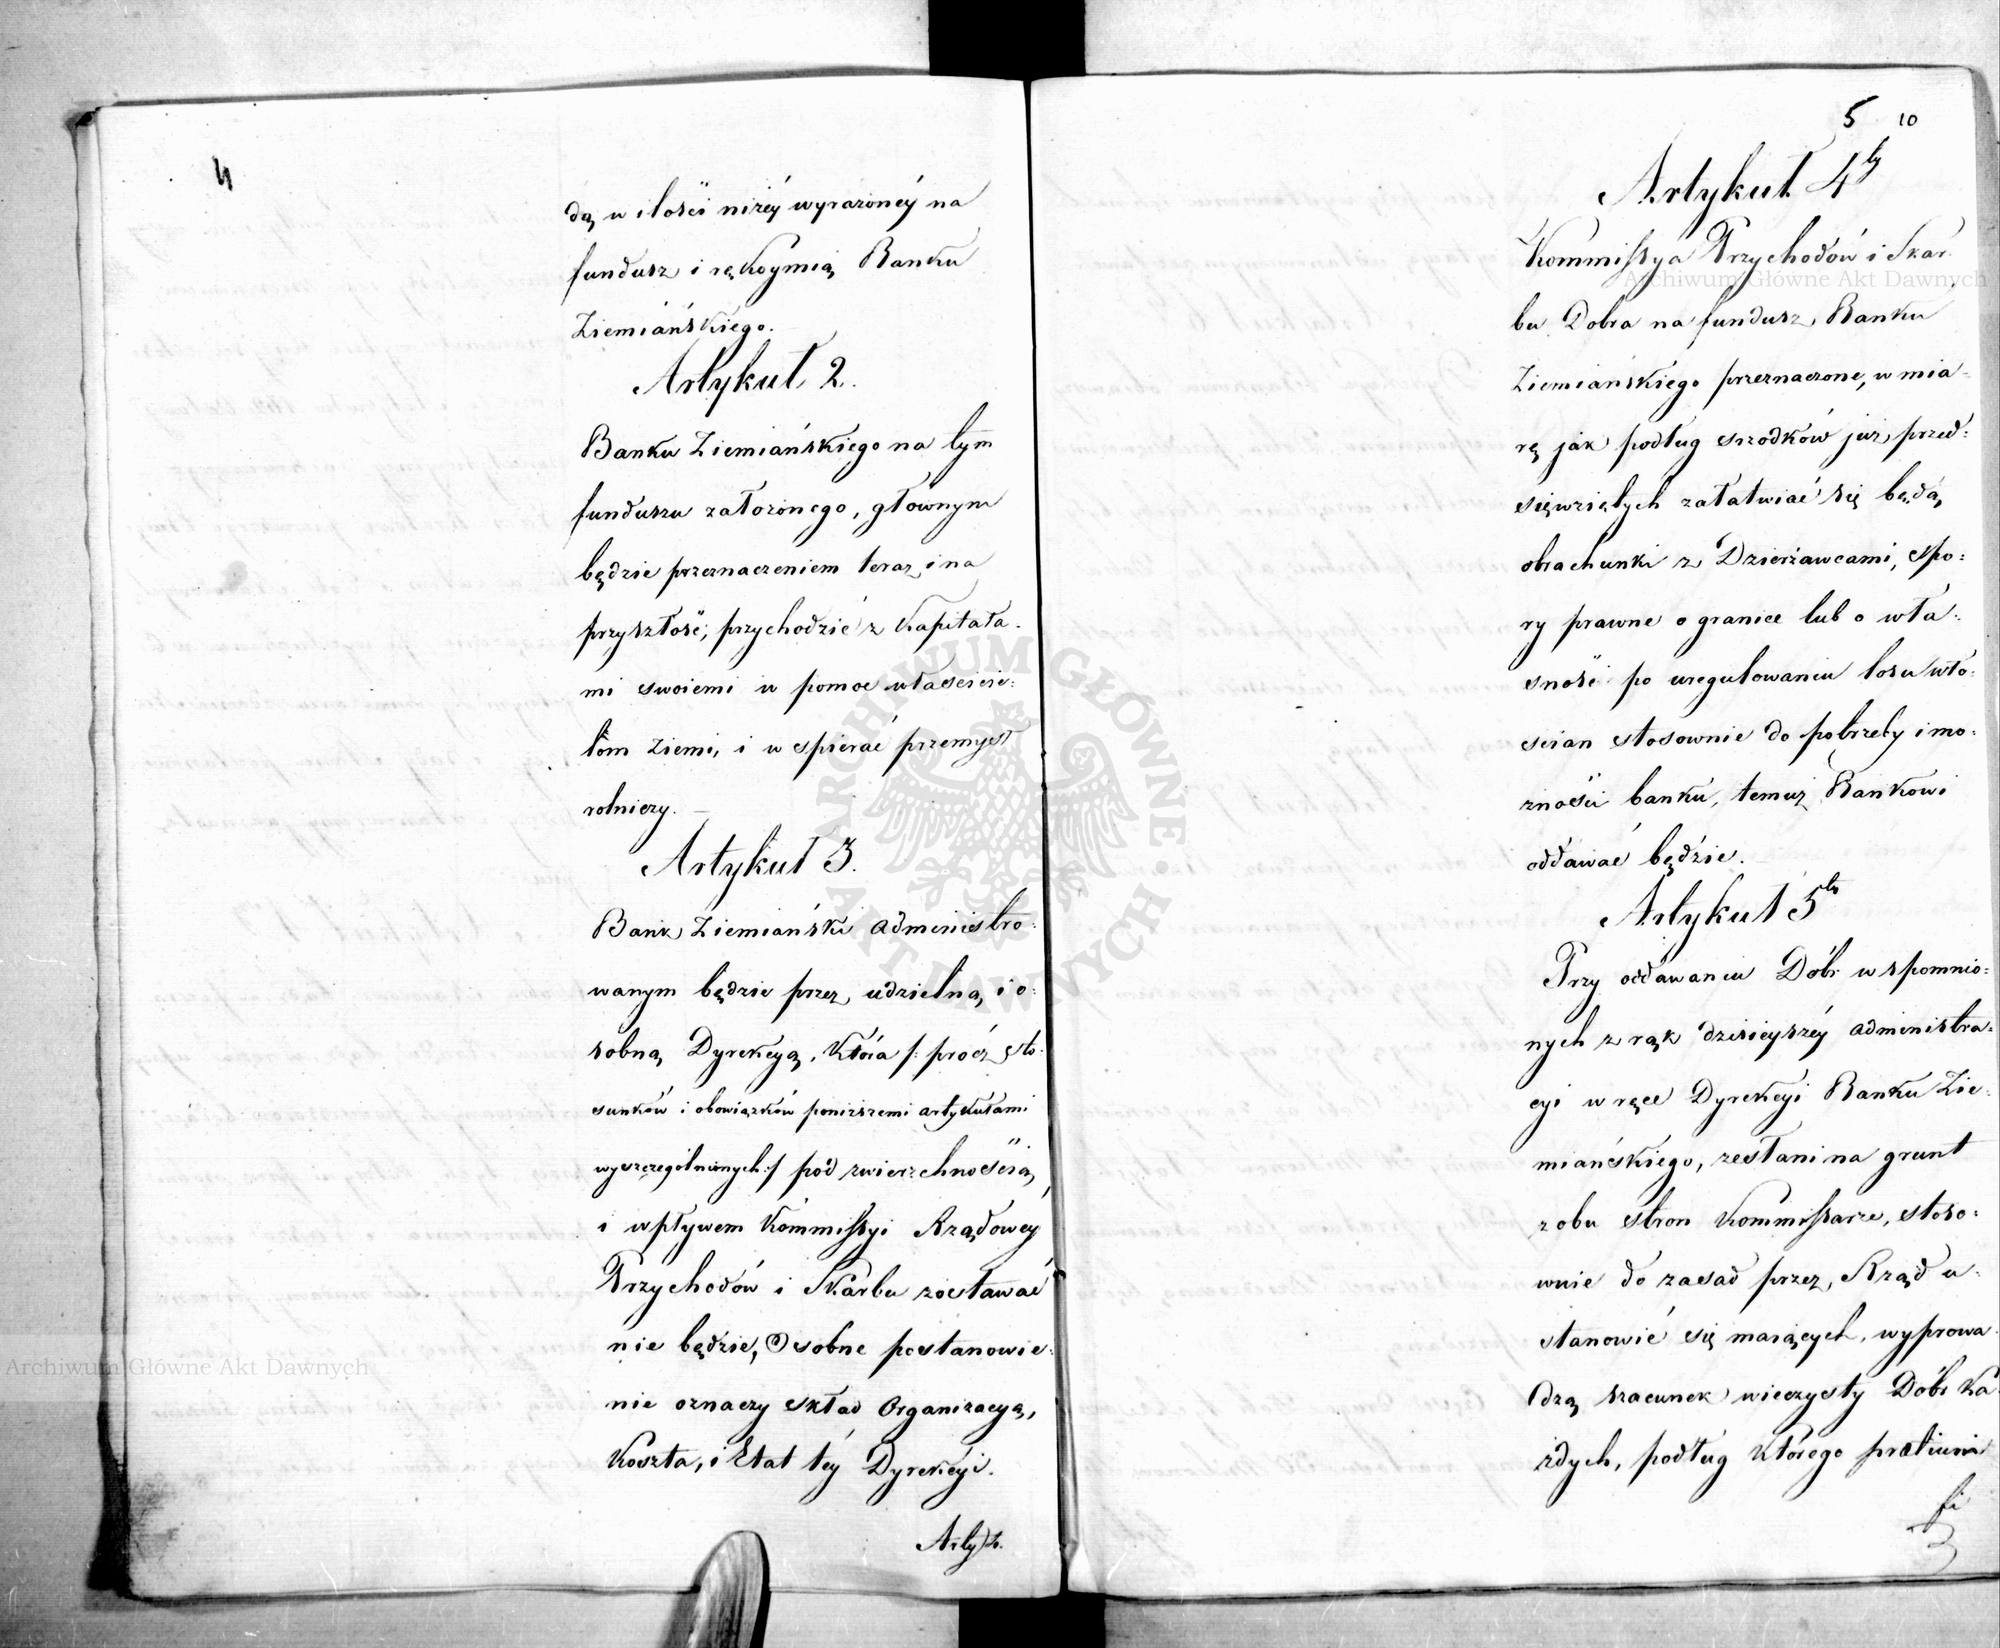 4
dą w ilości niżéy wyrażonéy na
fundusz i rękoymią Banku
Ziemiańskiego.
Artykuł 2.
Banku Ziemiańskiego na tym
funduszu założonego, głównym
będzie przeznaczeniem teraz i na
przyszłość, przychodzić z Kapitała-
mi swoiemi w pomoc właścicie:
lom ziemi, i wspierać przemysł
rolniczy. —
Artykuł 3.
Bank Ziemiański administro:
wanym będzie przez udzielną i o:
sobną Dyrekcyą, która /: prócz sto:
sunków i obowiązków poniższemi artykułami
wyszczególnionych :/ pod zwierzchnością
i wpływem Kommissyi Rządowéy
Przychodów i Skarbu zostawać
nie będzie, Osobne postanowie:
nie oznaczy skład Organizacyą,
Koszta, i Etat téy Dyrekcyi.
5 10
Artykuł 4ty
Kommissya Przychodów i Skar
bu Dobra na fundusz Banku
Ziemiańskiego przeznaczone, w mia-
rę jak podług srzodków już przed:
sięwziętych załatwiać się będą
obrachunki z Dzierżawcami, spo:
ry prawne o granice lub o wła:
sność po uregulowaniu losu wło:
scian stosownie do potrzeby i mo:
żności banku, temuż Bankowi
oddawać będzie.
Artykuł 5ty
Przy oddawaniu Dóbr wspomnio:
nych z rąk dzisieyszéy administra:
cyi w ręce Dyrekcyi Banku Zie:
miańskiego, zesłani na grunt
z obu stron Kommissarze, stoso:
wnie do zasad przez Rząd u:
stanowić się maiących, wyprowa
dzą szacunek wieczysty Dóbr ka
żdych, podług którego praetium
fi
Archiwum Główne Akt Dawnych
Archiwum Główne Akt Dawnych
ARCHIWUM GŁÓWNE · AKT DAWNYCH ·